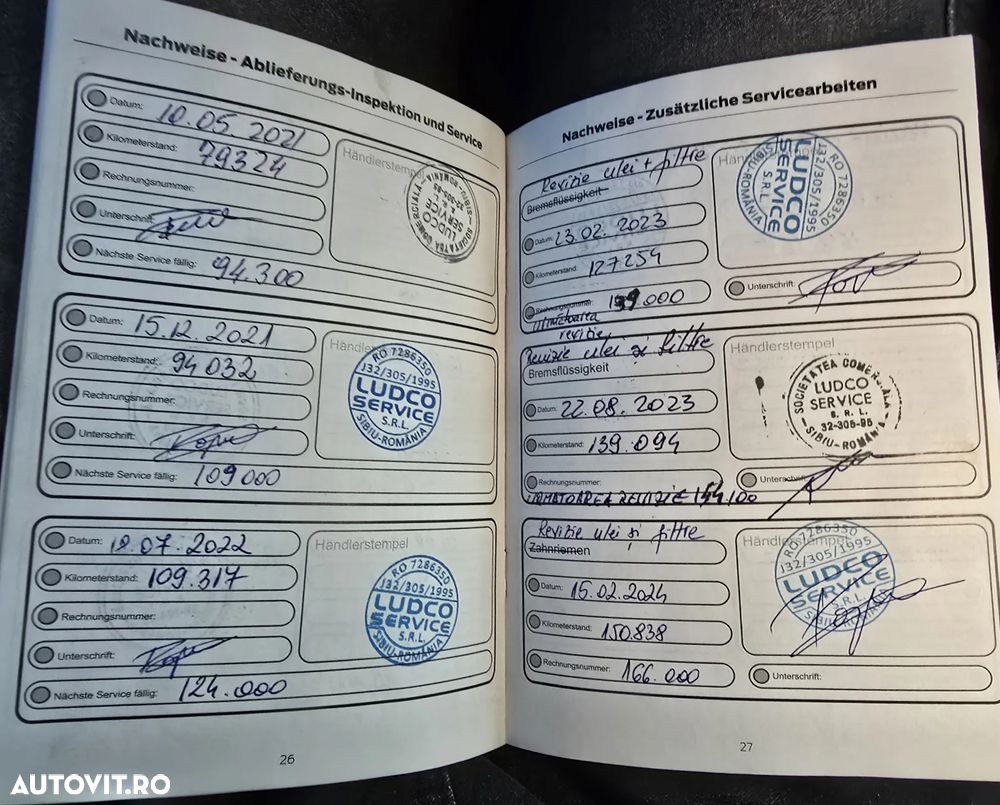 Nachweise - Ablieferungs-Inspektion und Service
Datum: 10.05 2021
Kilometerstand: 79324
Rechnungsnummer:
Unterschrift:
Nächste Service fällig: 94.300
Händlerstempel
SOCIETATEA COMERCIALA
LUDCO
SERVICE
S. R. L.
32-305-95
SIBIU-ROMANIA
Datum: 15.12.2021
Kilometerstand: 94032
Rechnungsnummer:
Unterschrift:
Nächste Service fällig: 109000
RO 7286350
J32/305/1995
LUDCO
SERVICE
S.R.L.
SIBIU-ROMÂNIA
Datum: 18.07.2022
Kilometerstand: 109.317
Rechnungsnummer:
Unterschrift:
Nächste Service fällig: 124.000
Händlerstempel
RO 7286350
J32/305/1995
LUDCO
SERVICE
S.R.L.
SIBIU-ROMÂNIA
26
Nachweise - Zusätzliche Servicearbeiten
Revizie ulei + filtre
Bremsflüssigkeit
Datum: 23.02.2023
Kilometerstand: 127254
Rechnungsnummer: 139000
Unterschrift:
RO 7286350
J32/305/1995
LUDCO
SERVICE
S.R.L.
SIBIU-ROMÂNIA
Următoarea
revizie
Revizie ulei si filtre
Bremsflüssigkeit
Datum: 22.08.2023
Kilometerstand: 139.094
Rechnungsnummer:
URMATOAREA REVIZIE 154.100
Unterschrift:
Händlerstempel
SOCIETATEA COMERCIALA
LUDCO
SERVICE
S. R. L.
32-305-95
SIBIU-ROMANIA
Revizie ulei și filtre
Zahnriemen
Datum: 15.02.2024
Kilometerstand: 150.838
Rechnungsnummer: 166.000
Unterschrift:
Händlerstempel
RO 7286350
J32/305/1995
LUDCO
SERVICE
S.R.L.
SIBIU-ROMÂNIA
27
AUTOVIT.RO